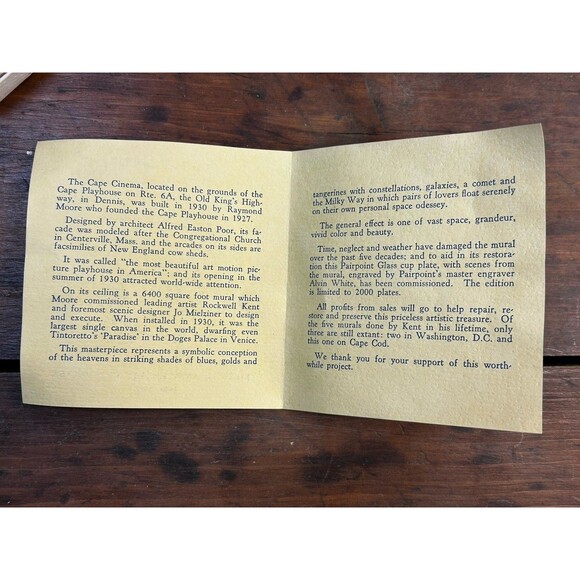 The Cape Cinema, located on the grounds of the
Cape Playhouse on Rte. 6A, the Old King's High-
way, in Dennis, was built in 1930 by Raymond
Moore who founded the Cape Playhouse in 1927.
Designed by architect Alfred Easton Poor, its fa-
cade was modeled after the Congregational Church
in Centerville, Mass. and the arcades on its sides are
facsimilies of New England cow sheds.
It was called "the most beautiful art motion pic-
ture playhouse in America"; and its opening in the
summer of 1930 attracted world-wide attention.
On its ceiling is a 6400 square foot mural which
Moore commissioned leading artist Rockwell Kent
and foremost scenic designer Jo Mielziner to design
and execute. When installed in 1930, it was the
largest single canvas in the world, dwarfing even
Tintoretto's 'Paradise' in the Doges Palace in Venice.
This masterpiece represents a symbolic conception
of the heavens in striking shades of blues, golds and
tangerines with constellations, galaxies, a comet and
the Milky Way in which pairs of lovers float serenely
on their own personal space odessey.
The general effect is one of vast space, grandeur,
vivid color and beauty.
Time, neglect and weather have damaged the mural
over the past five decades; and to aid in its restora-
tion this Pairpoint Glass cup plate, with scenes from
the mural, engraved by Pairpoint's master engraver
Alvin White, has been commissioned. The edition
is limited to 2000 plates.
All profits from sales will go to help repair, re-
store and preserve this priceless artistic treasure. Of
the five murals done by Kent in his lifetime, only
three are still extant: two in Washington, D.C. and
this one on Cape Cod.
We thank you for your support of this worth-
while project.